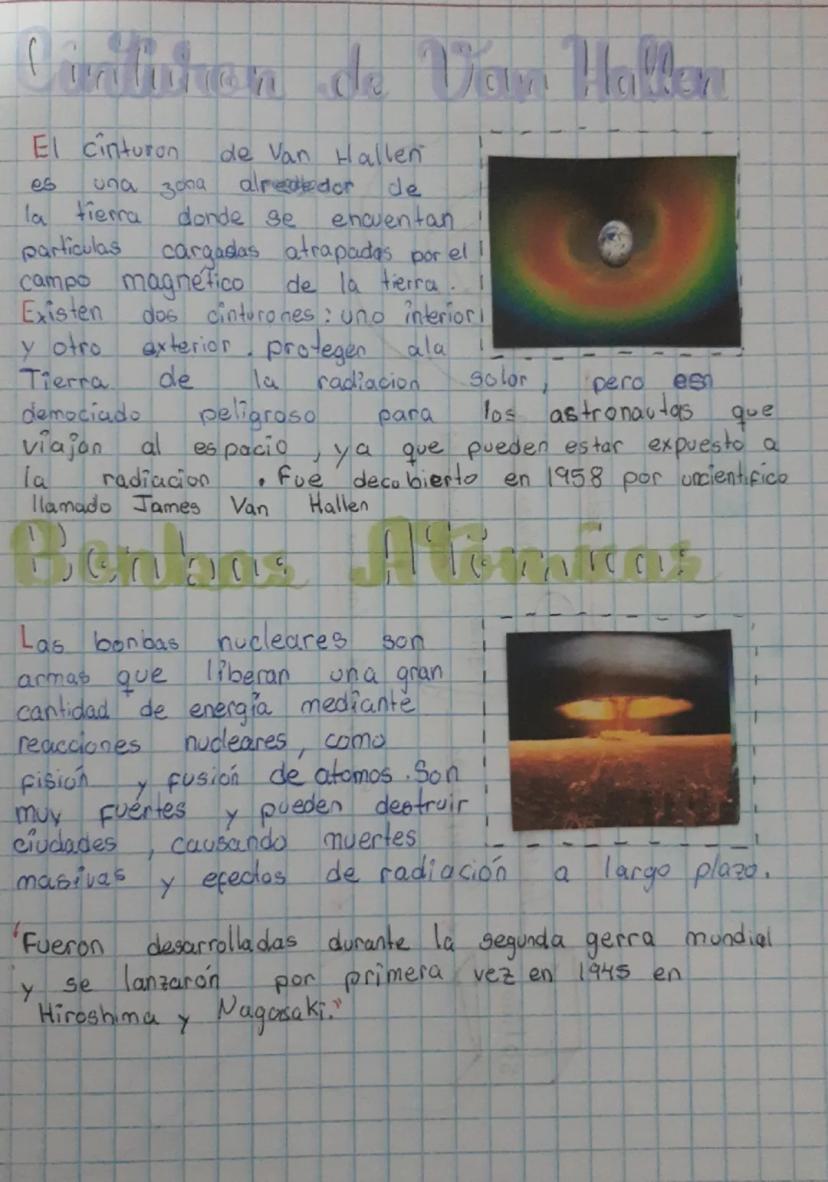 Cinturon de Van Hallen
El cinturon de Van Hallen
es una zona alrededor de
la tierra donde se encuentan
particulas cargadas atrapadas por el
campo magnético de la tierra.
Existen dos cinturones: uno interior
y otro exterior. protegen ala
Tierra de la radiacion solar, pero es
demociado peligroso para los astronautas que
viajan al espacio, ya que pueden estar expuesto a
la radiacion. fue decobierto en 1958 por uncientifico
llamado James Van Hallen
Bonbas Atómicas
Las bonbas nucleares son
armas que liberan una gran
cantidad de energía mediante
reacciones nucleares, como
fisión y fusión de atomos. Son
muy fuértes y pueden destruir
ciudades, causando muertes
masivas y efectos de radiación a largo plazo.
"Fueron desarrolladas durante la segunda gerra mundial
y se lanzarón por primera vez en 1945 en
Hiroshima y Nagasaki."